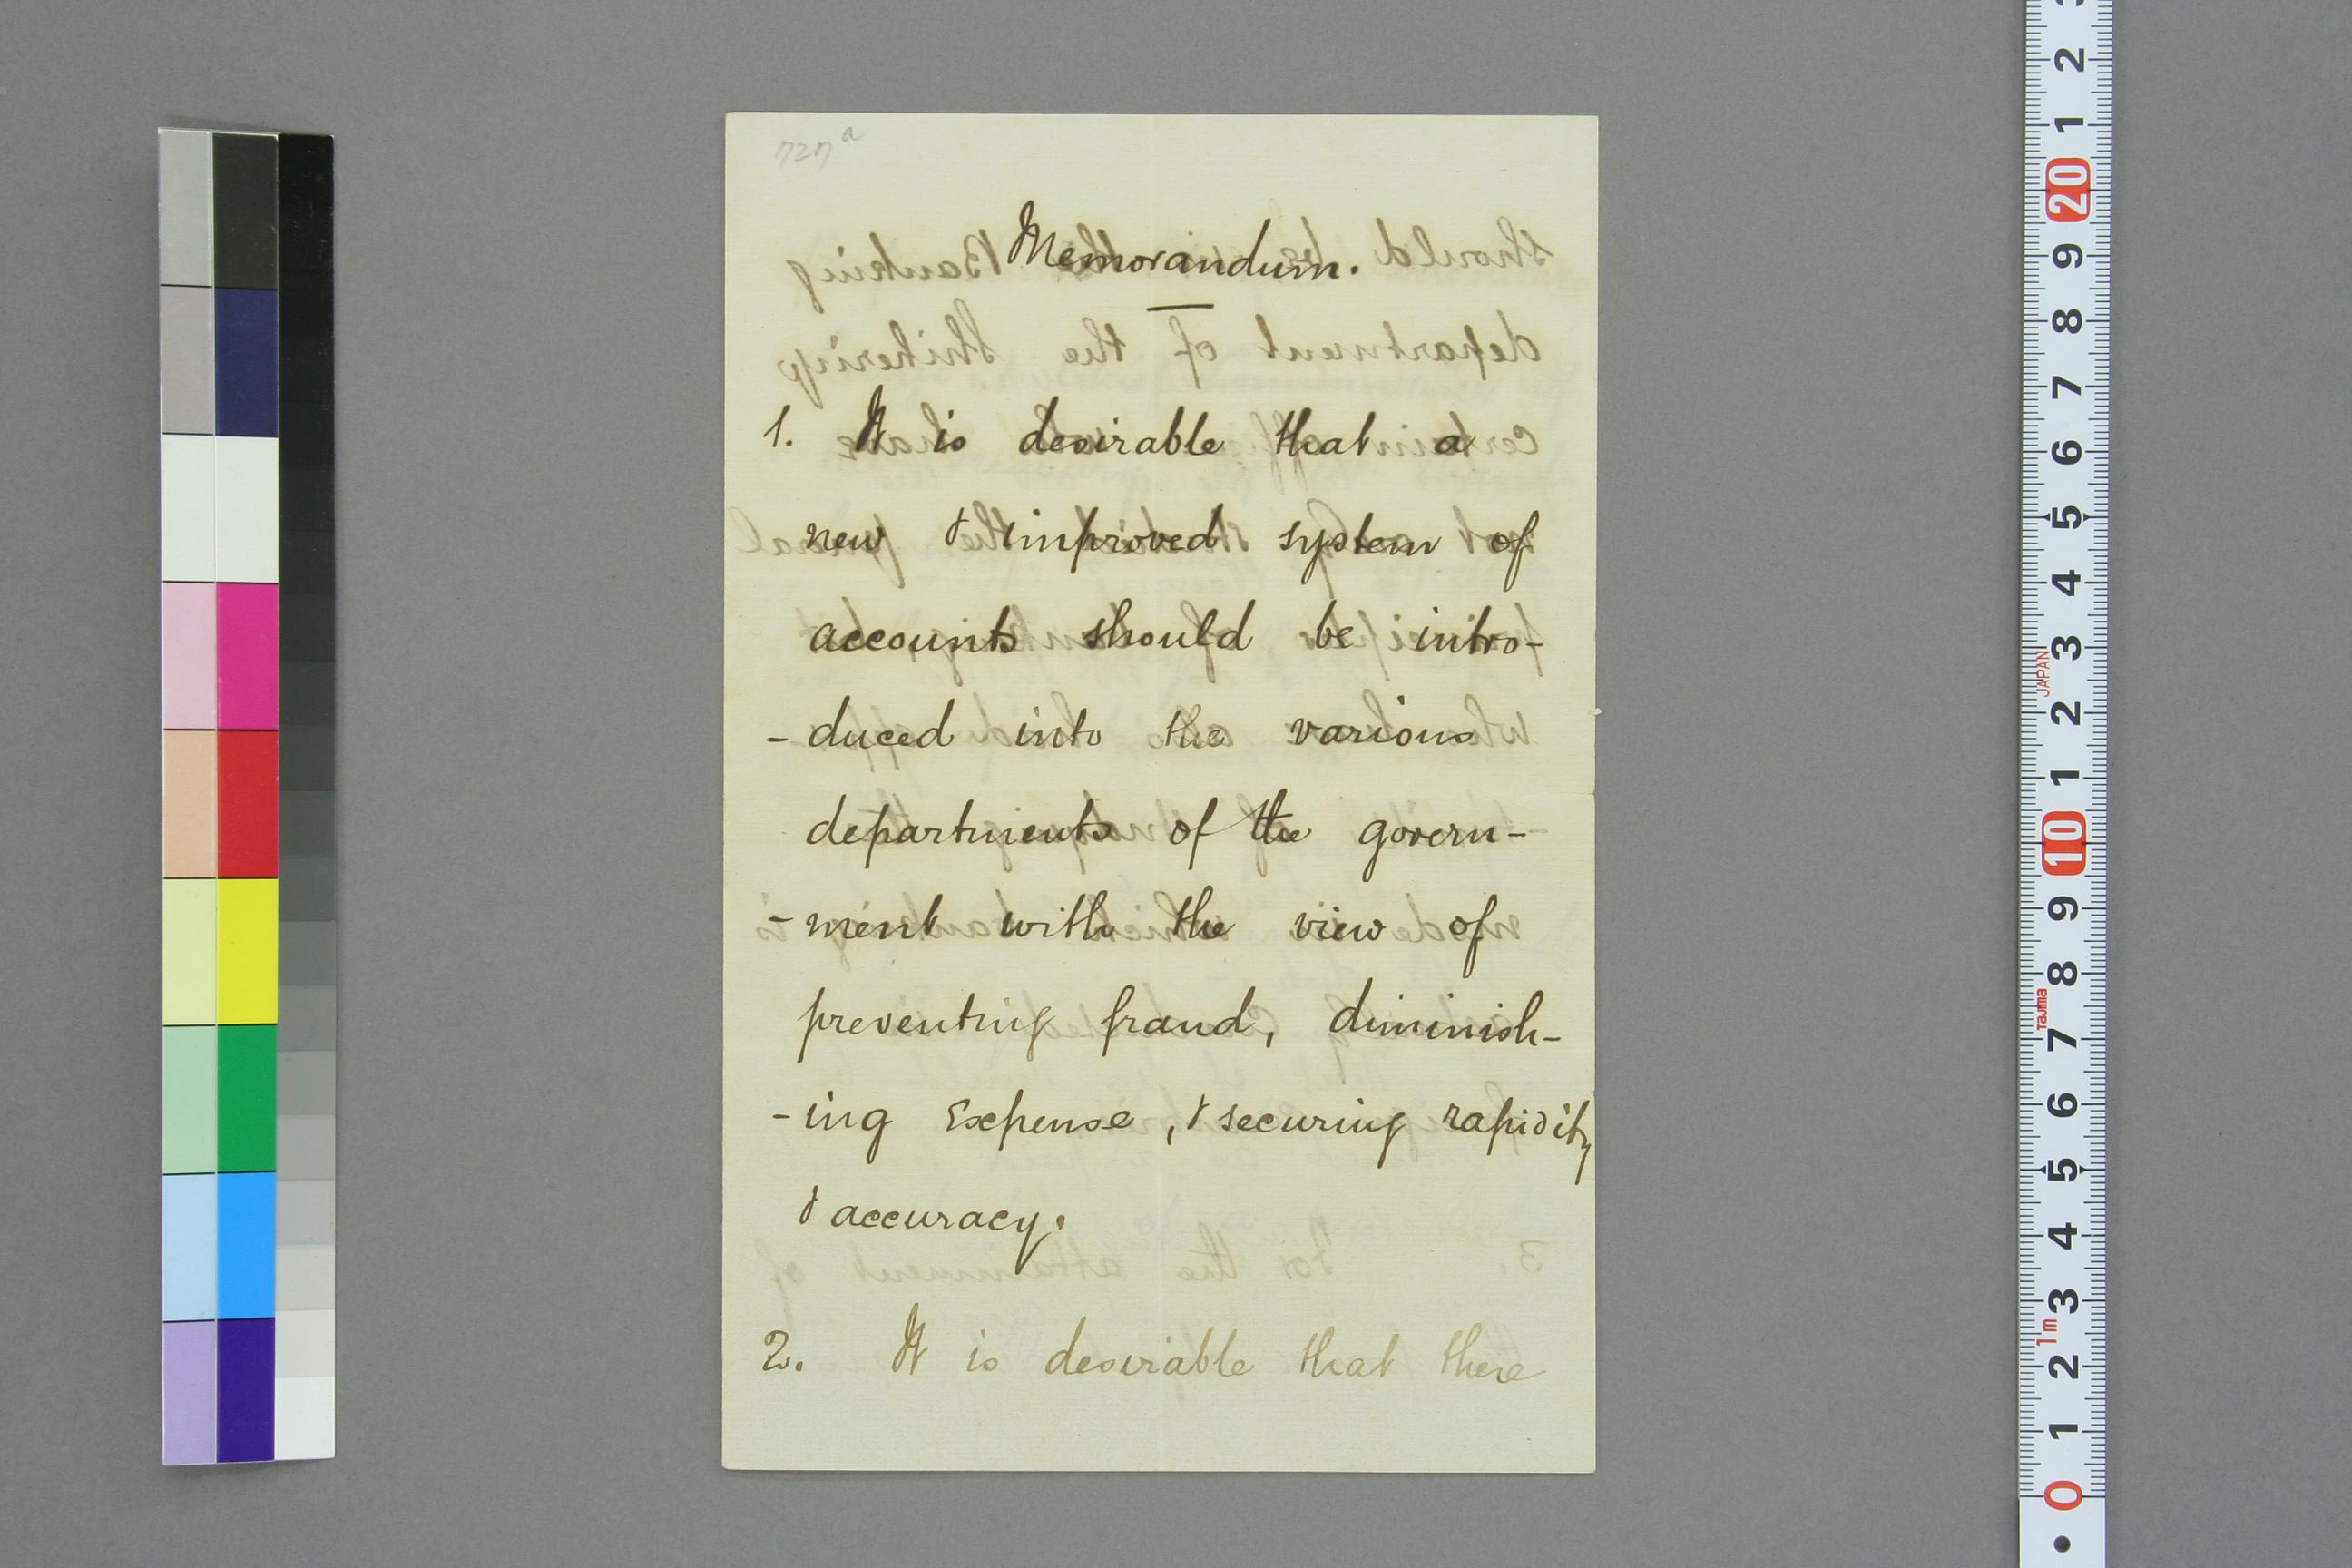 727 a
Memorandum.
1. It is desirable that a
new & improved system of
accounts should be intro-
- duced into the various
departments of the govern-
- ment with the view of
preventing fraud, diminish-
- ing Expense, & securing rapidity
& accuracy.
2. It is desirable that there
3
2
1
20
9
8
7
6
5
4
3
JAPAN
2
1
10
9
8
Tajima
7
6
5
4
3
1m
2
1
0